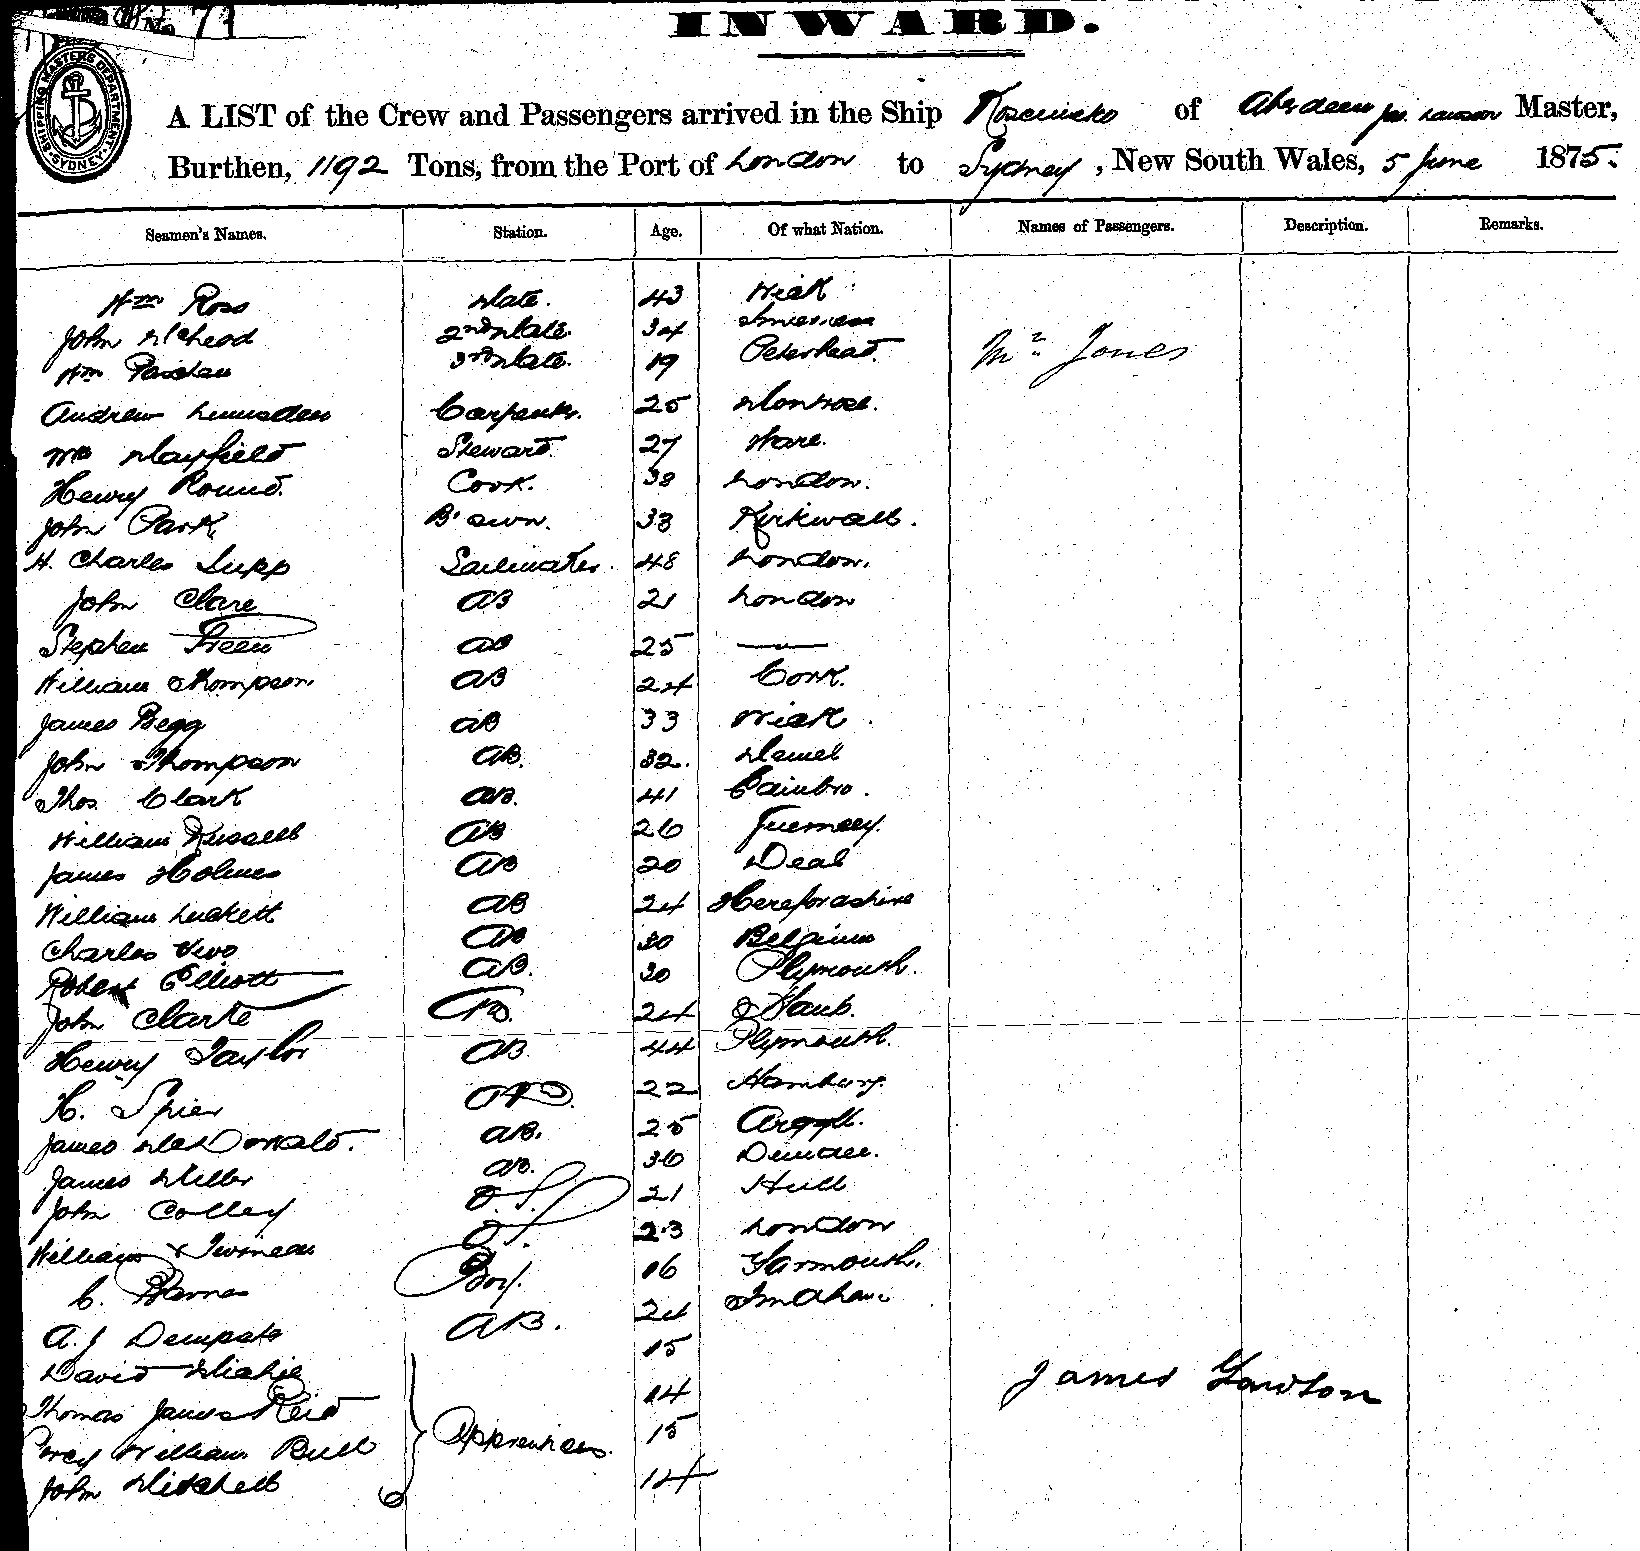 No 77
INWARD.
SHIPPING MASTERS DEPARTMENT. SYDNEY
A LIST of the Crew and Passengers arrived in the Ship Kosciusko of Aberdeen Jas. Lawson Master,
Burthen, 1192 Tons, from the Port of London to Sydney, New South Wales, 5 June 1875.
Seamen's Names. Station. Age. Of what Nation. Names of Passengers. Description. Remarks.
Wm Ross Mate. 43 Wick
John McLeod 2nd Mate. 34 Inverness
Wm 3rd Mate. 19 Peterhead. Mr Jones
Andrew Lumsden Carpenter. 25 Montrose.
Wm Mayfield Steward. 27 Ware.
Henry Round. Cook. 38 London.
John Park B'swn. 33 Kirkwall.
H. Charles Supp Sailmaker. 48 London.
John Clare AB 21 London
Stephen Green AB 25 —
William Thompson AB 24 Cork.
James Begg AB 33 Wick.
John Thompson AB. 32. Memel
Thos. Clark AB. 41 Gainbro.
William Russell AB 26 Guernsey.
James Holmes AB 20 Deal
William Luckett AB 24 Herefordshire
Charles Vivo AB 30 Belgium
Robert Elliott AB. 30 Plymouth.
John Clarke AB. 24
Henry Taylor AB 44 Plymouth.
H. Spier AB. 22 Hamburg.
James MacDonald. AB. 25 Argyll.
James Miller AB. 36 Dundee.
John Colley O.S. 21 Hull
William O.S. 23 London
C. Barnes Boy. 16 Yarmouth.
A. J Dempster AB. 24
David Michie 15
James Lawson
Thomas James Reid 14
Percy William Bull Apprentices. 15
John Mitchell 14